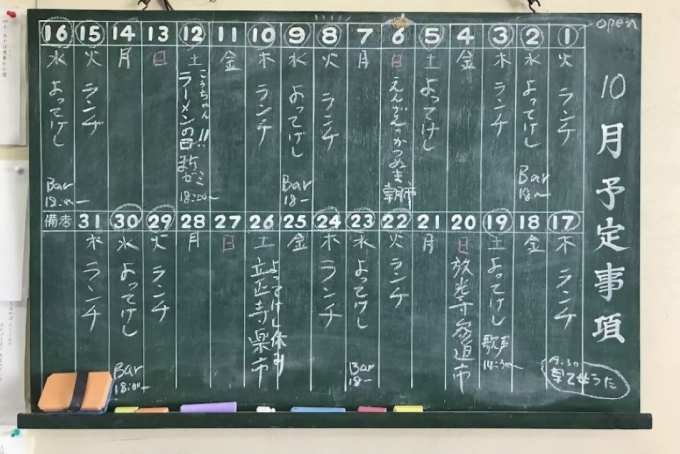 open
10月予定事項
① 火 ランチ
② 水 よってけし Bar 18:~
③ 木 ランチ
4 金
⑤ 土 よってけし
⑥ 日 朝市
7 月
⑧ 火 ランチ
⑨ 水 よってけし Bar 18:~
⑩ 木 ランチ
11 金
⑫ 土 こうちゃん!! ラーメンの日 18:00~
13 日
14 月
⑮ 火 ランチ
⑯ 水 よってけし Bar 18:00~
⑰ 木 ランチ
18 金
⑲ 土 よってけし 歌声 14:30~
⑳ 日
21 月
㉒ 火 ランチ
㉓ 水 よってけし Bar 18~
㉔ 木 ランチ
25 金
㉖ 土 よってけし休み 立正寺楽市
27 日
28 月
㉙ 火 ランチ
㉚ 水 よってけし Bar 18:00~
31 木 ランチ
備考